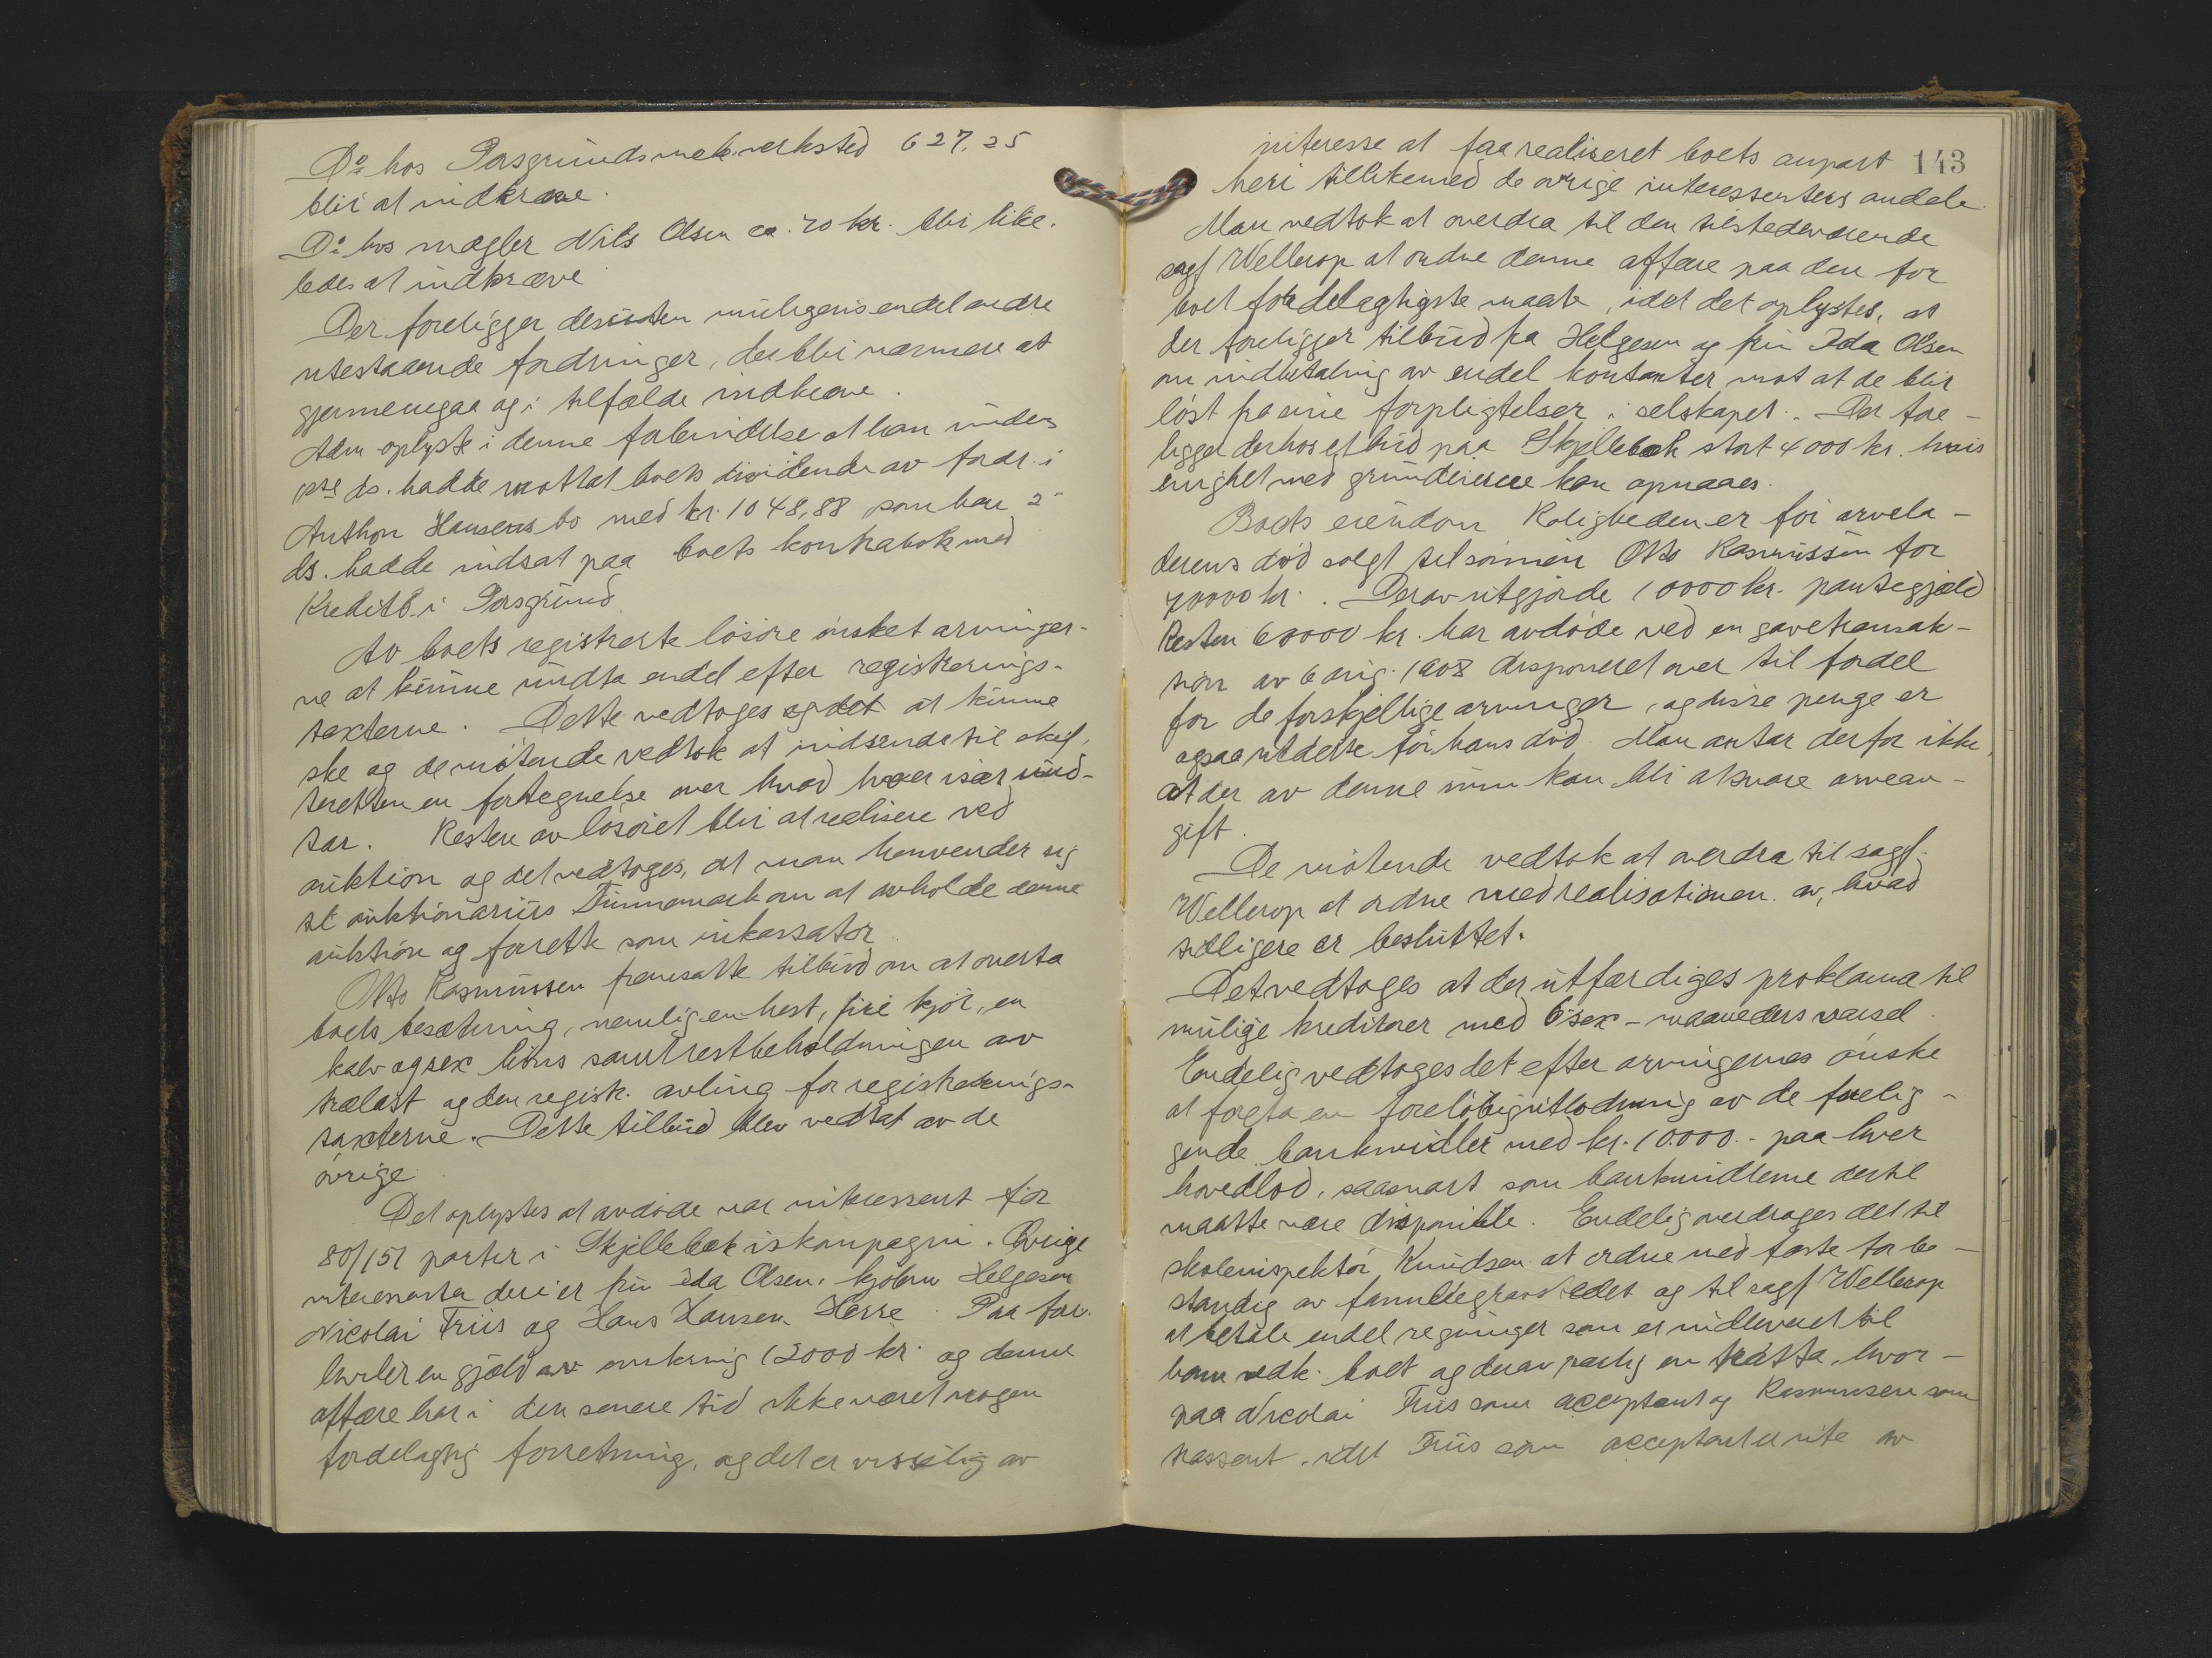 Do hos Porsgrunds mek. verksted 627,25
blir at indkræve.
Do hos mægler Nils Olsen ca. 70 kr. blir like-
ledes at indkræve
Der foreligger desuten muligens endel andre
utestaaende fordringer, der blir nærmere at
gjennemgaa og i tilfælde indkræve.
Adm oplyste i denne forbindelse at han under
1ste ds. hadde mottat boets dividende av fordr. i
Anthon Hansens bo med kr. 1048,88 som han 2-
ds. hadde indsat paa boets kontrabok med
Kreditb. i Porsgrund.
Av boets registrerte løsøre ønsket arvinger-
ne at kunne undta endel efter registrerings-
taxterne. Dette vedtoges og det at kunne
ske og de møtende vedtok at indsende til skif-
teretten en fortegnelse over hvad hver især und-
tar. Resten av løsøret blir at realisere ved
auktion og det vedtoges, at man henvender sig
til auktionarius Finnemark om at avholde denne
auktion og forrette som inkassator.
Otto Rasmussen fremsatte tilbud om at overta
boets besætning, nemlig en hest, fire kjør, en
kalv og sex høns samt restbeholdningen av
trælast og den regisk. avling for registrerings-
taxterne. Dette tilbud blev vedtat av de
øvrige
Det oplystes at avdøde var interessent for
80/151 parter i Skjellebek iskompagni. Øvrige
interessenter deri er fru Ida Olsen, kjøbm Helgesen
Nicolai Friis og Hans Hansen Herre. Paa for.
hviler en gjæld av omkring 12000 kr. og denne
affære har i den senere tid ikke været nogen
fordelagtig forretning, og det er visselig av
143
interesse at faa realiseret boets anpart
heri tillikemed de øvrige interessenters andele.
Man vedtok at overdra til den tilstedeværende
sagf Wellerop at ordne denne affære paa den for
boet fordelagtigste maate, idet det oplystes, at
der foreligger tilbud fra Helgesen og fru Ida Olsen
om indbetaling av endel kontanter mot at de blir
løst fra sine forpligtelser i selskapet. Der fore-
ligger derhos et bud paa Skjellebek stort 4000 kr. hvis
enighet med grundeierne kan opnaaes.
Boets eiendom Roligheden er før arvela-
derens død solgt til sønnen Otto Rasmussen for
70000 kr. Derav utgjorde 10000 kr. pantegjæld
Resten 60000 kr. har avdøde ved en gavetransak-
tion av 6 aug. 1908 disponeret over til fordel
for de forskjellige arvinger, og disse penge er
ogsaa utdelte før hans død. Man antar derfor ikke,
at der av denne sum kan bli at svare arveav-
gift.
De møtende vedtok at overdra til sagf.
Wellerop at ordne med realisationen av, hvad
tidligere er besluttet.
Det vedtoges at der utfærdiges proklama til
mulige kreditorer med 6 sex - maaneders varsel.
Endelig vedtoges det efter arvingernes ønske
at foreta en foreløbig utlodning av de forelig-
gende bankmidler med kr. 10.000.- paa hver
hovedlod, saasnart som bankmidlerne dertil
maatte være disponible. Endelig overdrages det til
skoleinspektør Knudsen at ordne med fæste for be-
standig av familiegravstedet og til sagf Wellerop
at betale endel regninger som er indleveret til
ham vedk. boet og derav særlig en tratta, hvor-
paa Nicolai Friis som acceptant og Rasmussen som
trassent, idet Friis som acceptant er ute av